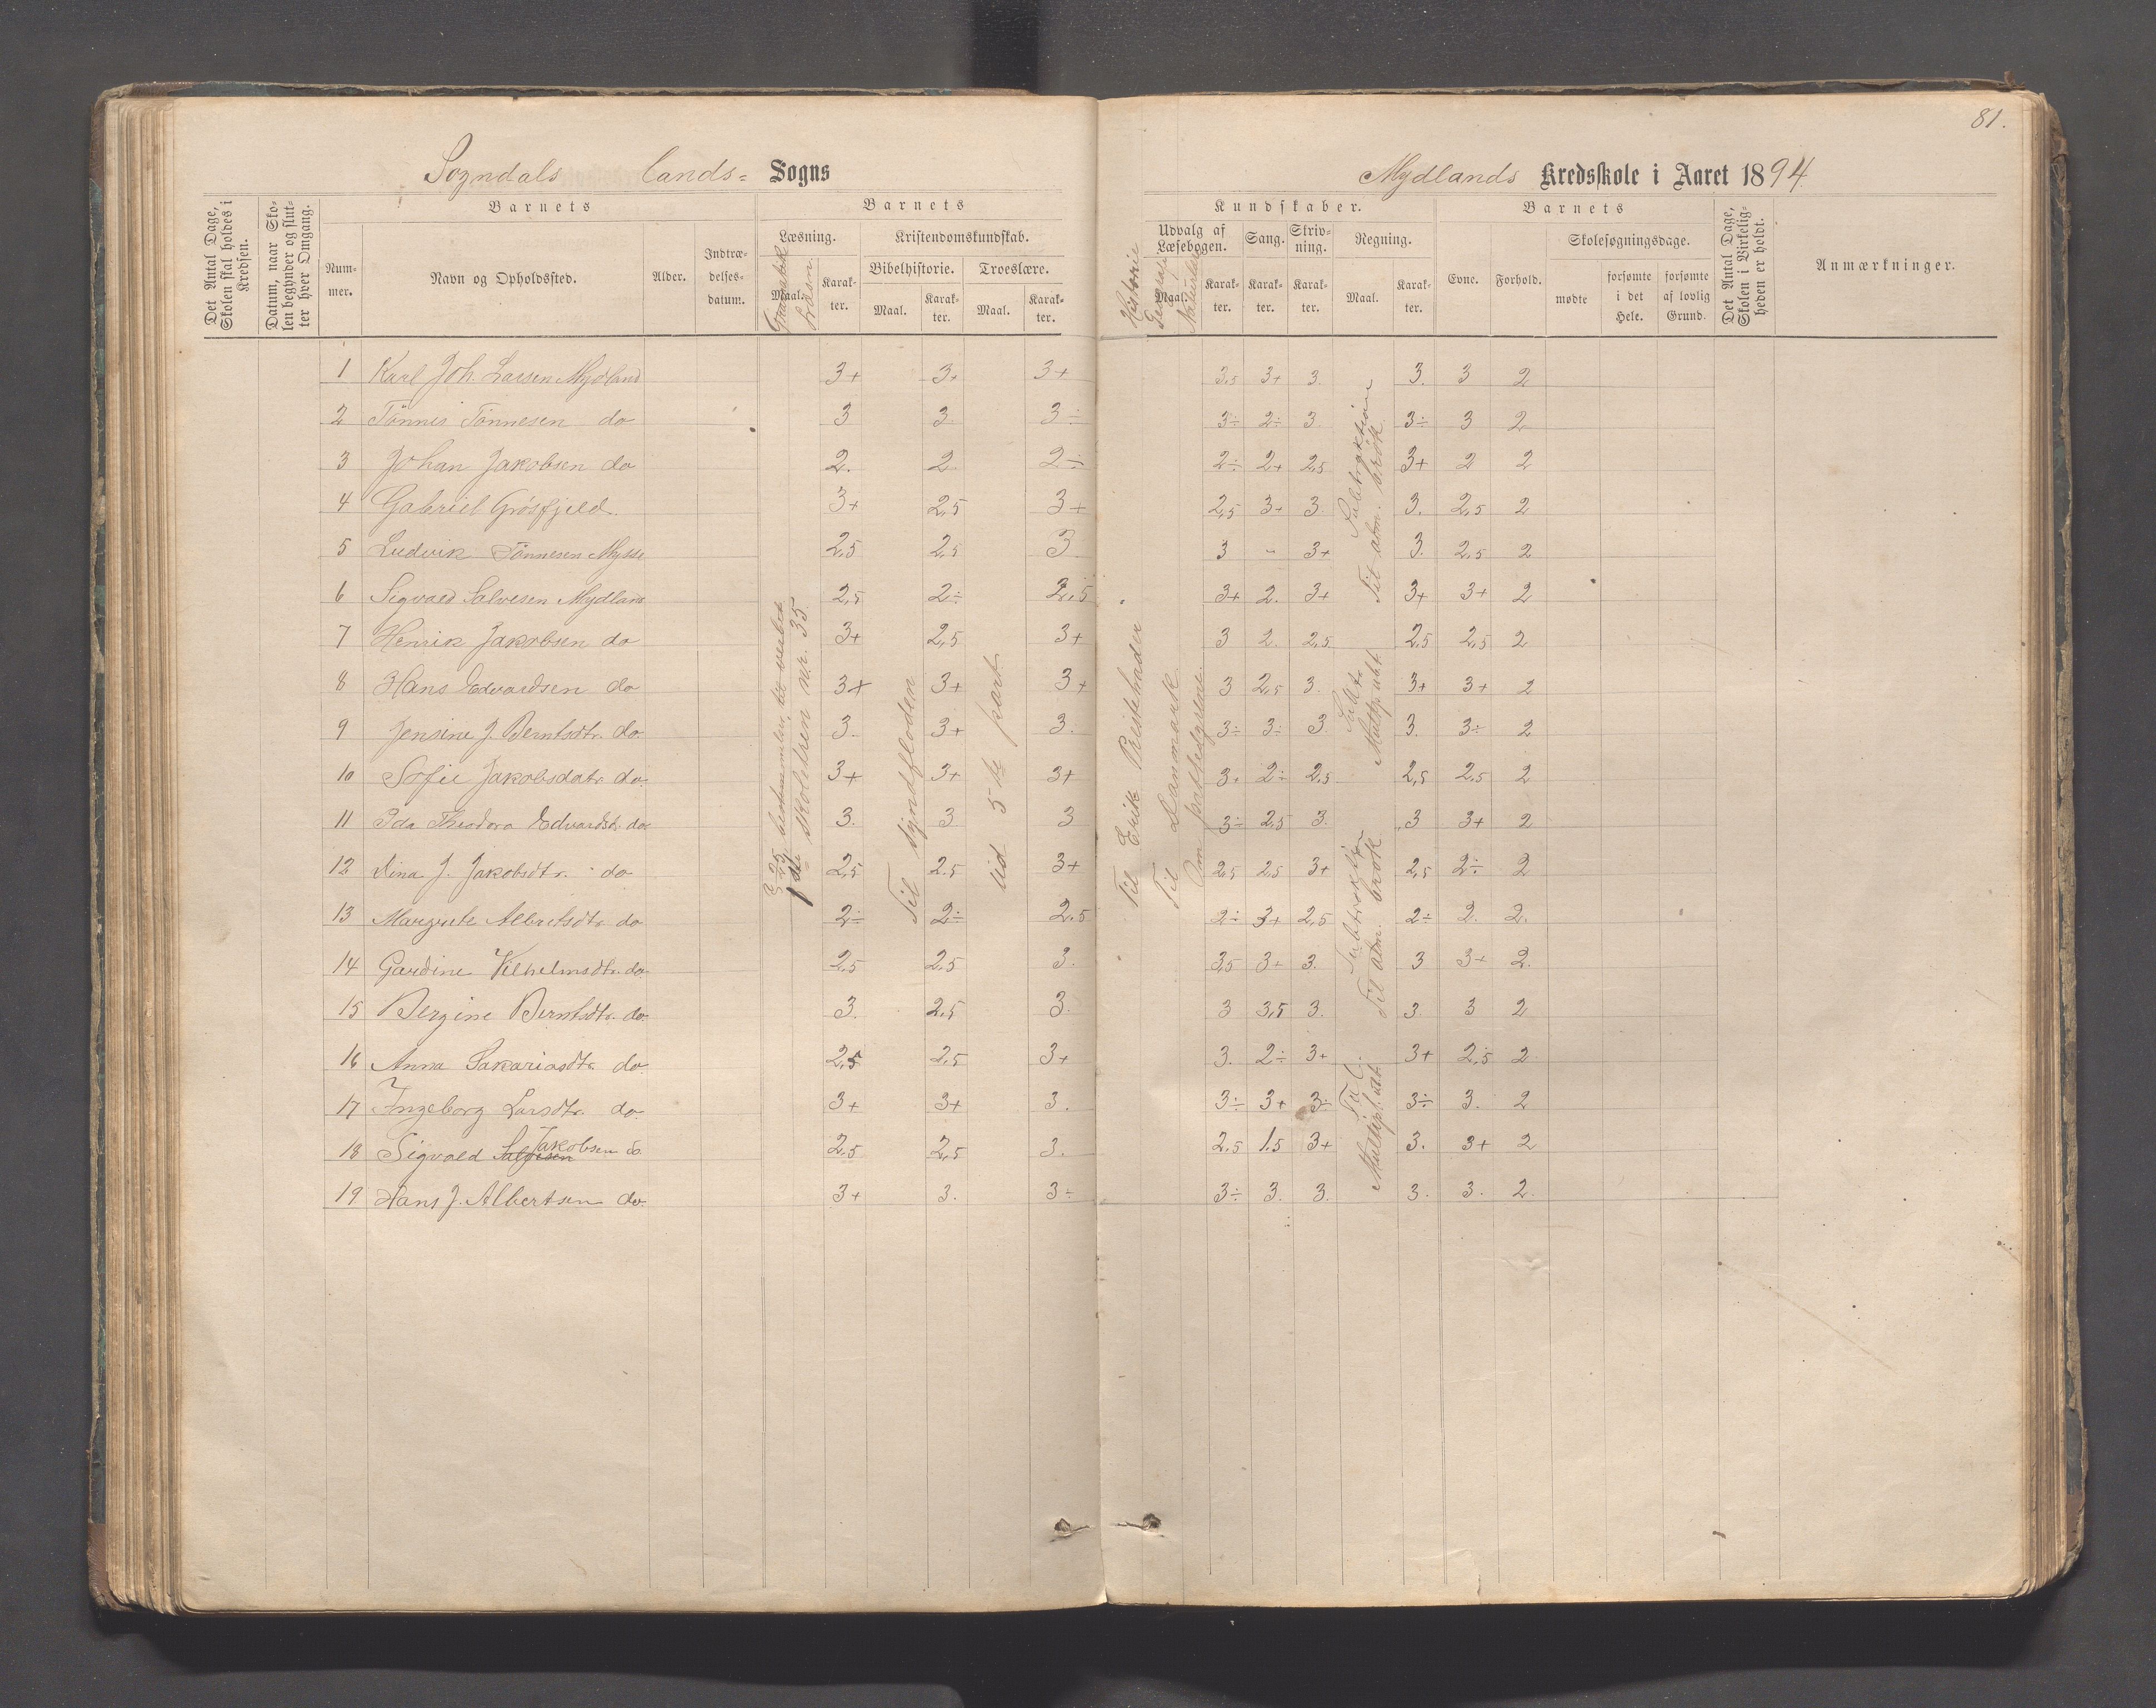 81.
Sogndals lands= Sogns
Mydlands Kredsskole i Aaret 1894
Det Antal Dage, Skolen skal holdes i Kredsen.
Datum, naar Skolen begynder og slutter hver Omgang.
Barnets
Nummer.
Navn og Opholdssted.
Alder.
Indtrædelsesdatum.
Barnets
Læsning.
Maal.
Karakter.
Kristendomskundskab.
Bibelhistorie.
Maal.
Karakter.
Troeslære.
Maal.
Karakter.
Kundskaber.
Udvalg af Læsebogen.
Maal.
Karakter.
Sang.
Karakter.
Skrivning.
Karakter.
Regning.
Maal.
Karakter.
Barnets
Evne.
Forhold.
Skolesøgningsdage.
mødte
forsømte i det Hele.
forsømte af lovlig Grund.
Det Antal Dage, Skolen i Virkeligheden er holdt.
Anmærkninger.
Historie
1 Karl Joh. Lassen Mydland 3+ 3+ 3+ 3,5 3+ 3. 3. 3 2
2 Tönnes Tönnesen do 3 3. 3÷ 3÷ 2÷ 3. 3÷ 3 2
3 Johan Jakobsen do 2. 2 2÷ 2÷ 2+ 2,5 3+ 2 2
4 Gabriel Grösfjeld. 3+ 2,5 3+ 2,5 3+ 3. 3. 2,5 2
5 Ludvik Tönnesen Mysse 2,5 2,5 3. 3 - 3+ 3. 2,5 2
6 Sigvald Salvesen Mydland 2,5 2÷ 2,5 3+ 2. 3+ 3+ 3+ 2
7 Henrik Jakobsen do 3+ 2,5 3+ 3 2. 2,5 2,5 2,5 2
8 Hans Edvardsen do 3+ 3+ 3+ 3 2,5 3. 3+ 3+ 2
9 Jensine J. Berntsdtr. do 3. 3+ 3. 3÷ 3÷ 3 3. 3÷ 2
10 Sofie Jakobsdatr. do. 3+ 3+ 3+ 3+ 2÷ 2,5 2,5 2,5 2
11 Ida Theodora Edvardsdtr. do 3. 3 3 3÷ 2,5 3. 3 3+ 2
12 Dina J. Jakobsdtr. do 2,5 2,5 3+ 2,5 2,5 3+ 2,5 2÷ 2
13 Margrete Albretsdtr. do 2÷ 2÷ 2,5 2÷ 3+ 2,5 2÷ 2. 2.
14 Gardine Vilhelmsdtr. do. 2,5 2,5 3. 3,5 3+ 3. 3 3+ 2.
15 Bergine Berntsdtr. do. 3. 2,5 3. 3 3,5 3. 3. 3 2
16 Anna Sakariasdtr. do. 2,5 2,5 3+ 3. 2÷ 3+ 3+ 2,5 2.
17 Ingeborg Larsdtr. do 3+ 3+ 3. 3÷ 3+ 3÷ 3÷ 3. 2
18 Sigvald Salvesen Jakobsen do. 2,5 2,5 3. 2,5 1,5 3+ 3. 3+ 2
19 Hans J. Albertsen do. 3+ 3. 3÷ 3÷ 3. 3. 3. 3. 2.
skolelæsen nr. 35
Til syndfloden
Ud 5te part
Til Erik Prestehader
Til Danmark
Subtraktion
Til alm. brök.
Subtraktion
Til alm. brök